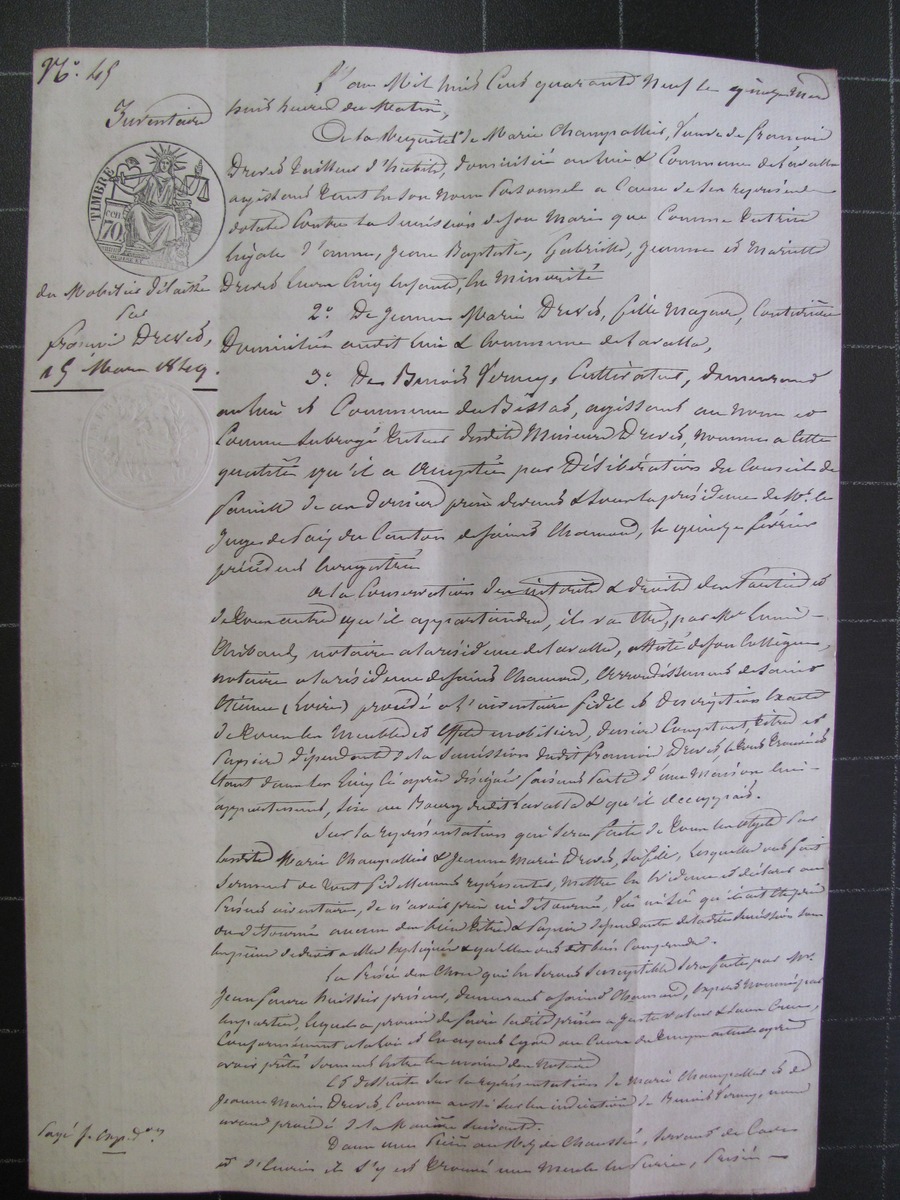 N°. 45
Inventaire
TIMBRE
70
du Mobilier délaissé
par
françois Drevet,
15 Mars 1849.
L'an Mil huit Cent quarante Neuf le quinze Mars
huit heures du Matin,
De la Requête de Marie Champallier, Veuve de françois
Drevet tailleur d'habits, domiciliée au lieu & Commune de Lavalla
agissant tant en son Nom Personnel a Cause de ses reprises
dotales Contre la Succession de son Mari que Comme tutrice
légale d'anne, Jean Baptiste, Gabrielle, Jeanne et Mariette
Drevet leurs Cinq Enfants, en Minorité
2° De Jeanne Marie Drevet, fille Majeure, Couturière
Domiciliée audit lieu & Commune de Lavalla,
3° De Benoit Verney, Cultivateur, demeurant
au lieu et Commune du Bessat, agissant au nom et
Comme Subrogé tuteur desdits Mineurs Drevet, nommé a cette
qualité qu'il a acceptée par Délibération du Conseil de
famille de ces derniers prise devant & sous la présidence de Mr. le
Juge de Paix du Canton de Saint Chamond, le quinze février
précédent Enregistrée
A la Conservation des intérêts & droits des Parties et
de tous autres qu'il appartiendra, il va être, par Me
notaire a la résidence de Lavalla, assisté de son Collègue,
notaire a la résidence de Saint Chamond, Arrondissement de Saint
Etienne (Loire) procédé a l'inventaire fidel et description Exacte
de tous les Meubles et effets mobiliers, deniers Comptant, titres et
Papiers dépendant de la Succession dudit françois Drevet, le tout trouvé et
étant dans les lieux ci après désignés faisant Partie d'une Maison
appartenant, Sise au Bourg dudit Lavalla & qu'il occupait.
Sur la représentation qui sera faite de tous les objets par
lesdites Marie Champallier & Jeanne Marie Drevet, sa fille, lesquelles ont fait
Serment de tout fidellement représenter, mettre en évidence et déclarer au
Présent inventaire, de n'avoir pris ni détourné, Vu ni su qu'il ait été pris
ou détourné aucun des biens titres & Papiers dépendants de ladite Succession sous
les peines de droit a elles Expliquées & qu'elles ont dit bien Comprendre.
La Prisée des Choses qui en seront Susceptibles sera faite par Mr.
Jean faure huissier priseur, demeurant a Saint Chamond, Expert Nommé par
les parties, lequel a promis de faire ladite prisée a juste valeur & sans Crue,
Conformément a la loi et
avoir prêté serment Entre les mains du Notaire
Et de suite Sur la représentation de Marie Champallier et de
Jeanne Marie Drevet, Comme aussi sur les indications de Benoit Verney, nous
avons procédé de la Manière Suivante.
Dans une Pièce au Rez de Chaussée, servant de Cave
et d'Ecurie il s'y est trouvé une Meule en Pierre, Prisée